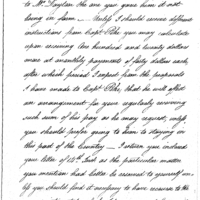 to Mr. Taylor are you gave him it not
being in favor. — Unless I should receive different
instructions from Capt. Pike, you may calculate
upon receiving One hundred and twenty dollars
more at monthly payments of forty dollars each,
after which period I expect from the proposals
I have made to Capt. Pike, that he will effect
an arrangement for your regularly receiving
such sum of his pay as he may request, unless
you should prefer going to him to staying in
this part of the Country — I return you inclosed
your letter of 24th Inst as the particular matter
you mention had better be reserved to yourself un-
til you should find it necessary to have recourse to the